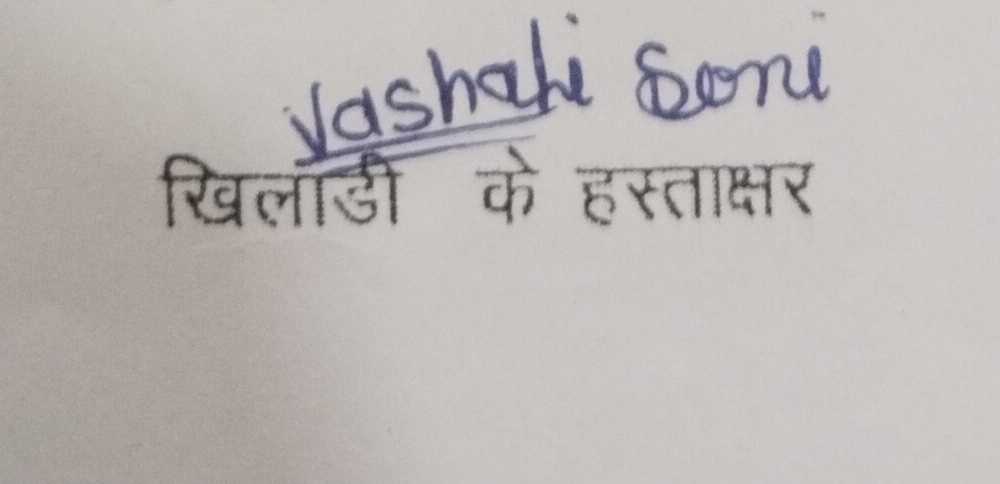 Vashahi Soni
खिलाडी के हस्ताक्षर